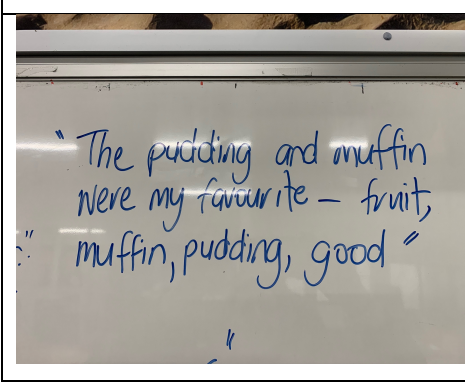 "The pudding and muffin
were my favourite – fruit,
muffin, pudding, good"